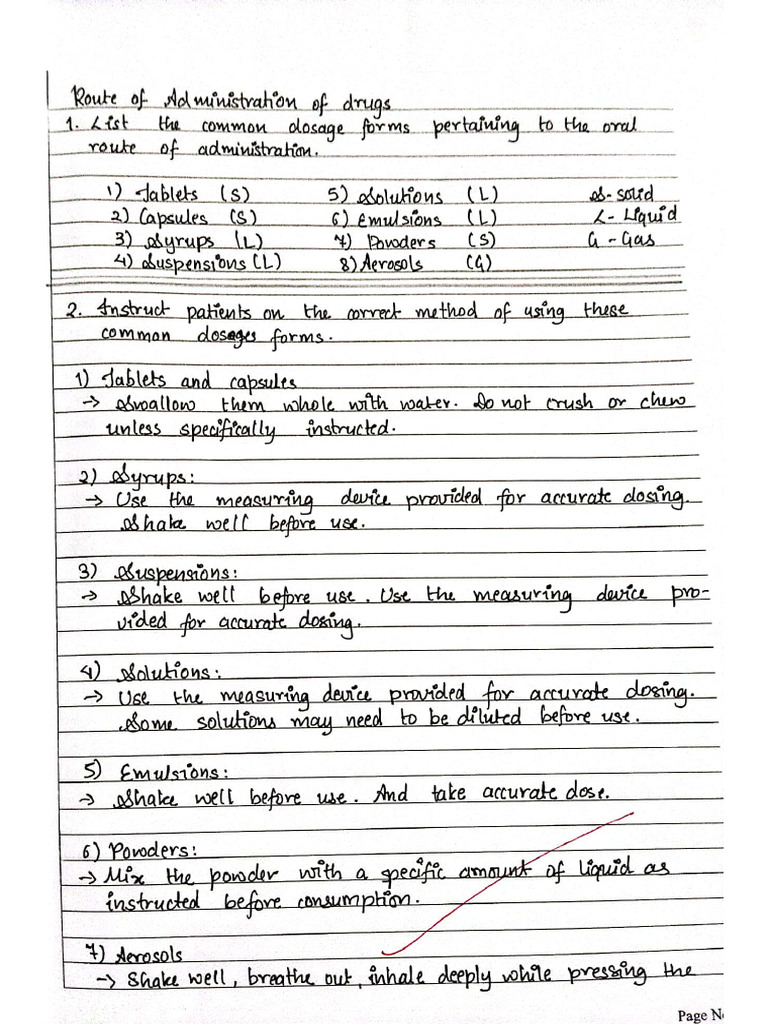 Route of Administration of drugs
1. List the common dosage forms pertaining to the oral
route of administration.
1) Tablets (S) 5) Solutions (L) S- solid
2) Capsules (S) 6) Emulsions (L) L- Liquid
3) Syrups (L) 7) Powders (S) G - Gas
4) Suspensions (L) 8) Aerosols (G)
2. Instruct patients on the correct method of using these
common dosages forms.
1) Tablets and capsules
→ Swallow them whole with water. Do not crush or chew
unless specifically instructed.
2) Syrups:
→ Use the measuring device provided for accurate dosing.
Shake well before use.
3) Suspensions:
→ Shake well before use. Use the measuring device pro-
vided for accurate dosing.
4) Solutions:
→ Use the measuring device provided for accurate dosing.
Some solutions may need to be diluted before use.
5) Emulsions:
→ Shake well before use. And take accurate dose.
6) Powders:
→ Mix the powder with a specific amount of liquid as
instructed before consumption.
7) Aerosols
→ Shake well, breathe out, inhale deeply while pressing the
Page N